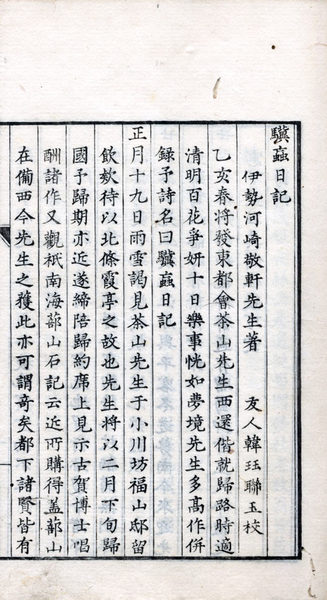 驥蝱日記
伊勢河崎敬軒先生著　友人韓珏聯玉校
乙亥春將發東都會茶山先生西還偕就歸路時適
清明百花爭妍十日樂事恍如夢境先生多高作併
録予詩名曰驥蝱日記
正月十九日雨雪謁見茶山先生于小川坊福山邸留
飲欵待以北條霞亭之故也先生將以二月下旬歸
國予歸期亦近遂締陪歸約席上見示古賀博士唱
酬諸作又觀祇南海蔀山石記云近所購得蓋蔀山
在備西今先生之獲此亦可謂奇矣都下諸賢皆有